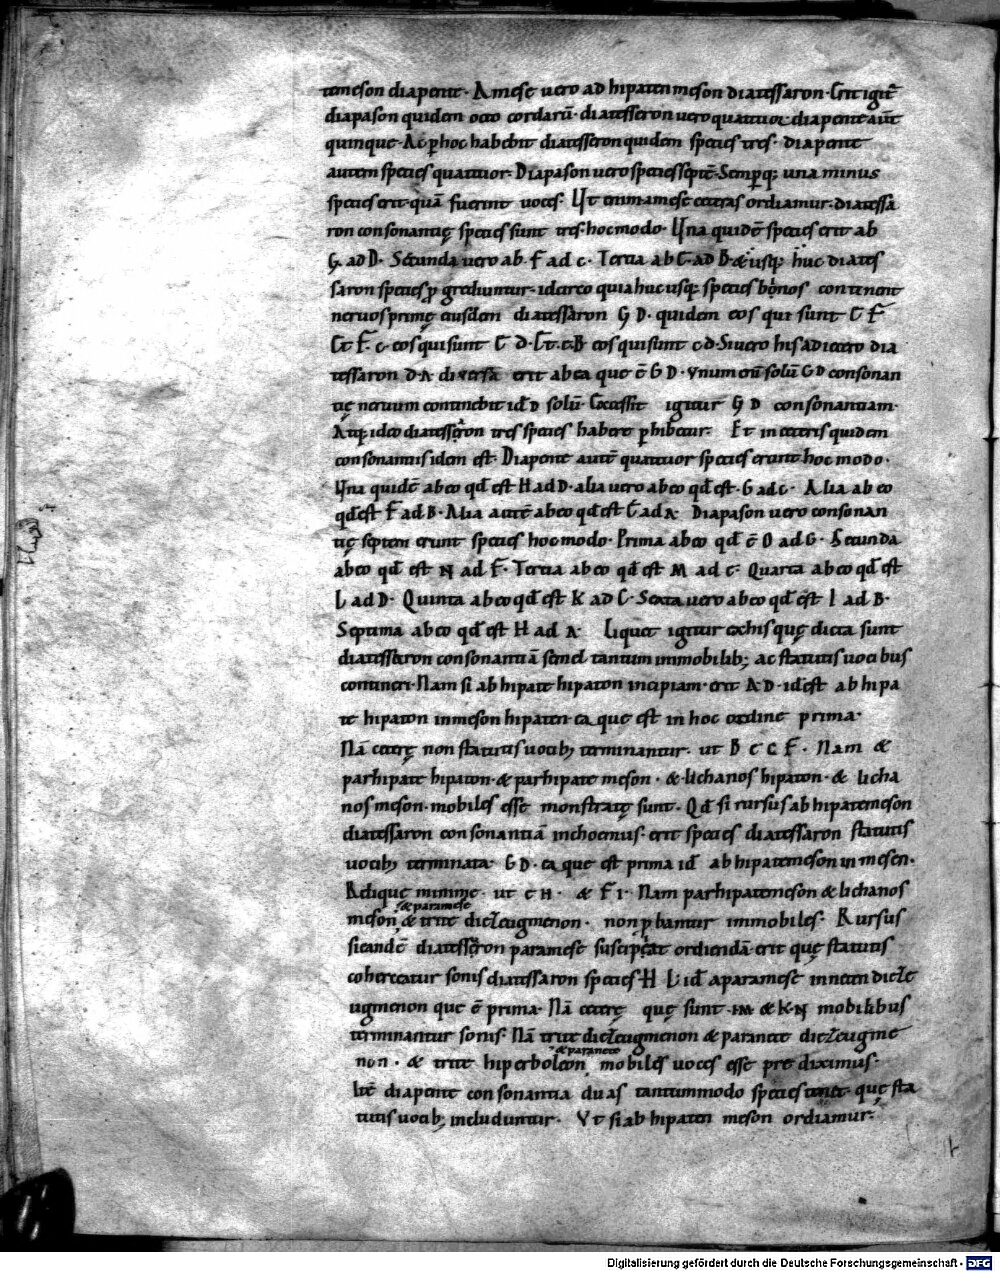 temeson diapente. A mese vero ad hipaten meson diatessaron. Erit igit̄
diapason quidem octo cordarū. diatesseron vero quattuor. diapente aūt
quinque. Ac p hoc habebit diatesseron quidem species tres. diapente
autem species quattuor. Diapason vero species septē. Semp̄ q; una minus
species erit quā fuerint voces. Ut enim a mese ceteras ordiamur. diatessa
ron consonantię species sunt tres. hoc modo. Una quidē species erit ab
G. ad D. Secunda vero ab. F ad c. Tertia ab C. ad B. & usq; huc diates
saron species p̄grediuntur. idcirco quia huc usq; species binos continent
nervos primę eiusdem diatessaron G D. quidem eos qui sunt C F
Et F. c. eos qui sunt C D. Et. c. B eos qui sunt c d. Si vero his adicero dia
tessaron D A diversa erit ab ea que ē G D. unum enī solū G D consonan
tię nervum continebit id D solū. Excessit igitur G D consonantiam.
Atq; ideo diatesseron tres species habere phibetur. Et in ceteris quidem
consonantiis idem est. Diapente autē quattuor species erunt hoc modo.
Una quidē ab eo qd est H ad D. alia vero ab eo qd est. G ad c. Alia ab eo
qd est F ad B. Alia autē ab eo qd est C ad A. Diapason vero consonan
tię septem erunt species hoc modo. Prima ab eo qd ē O ad G. Secunda
ab eo qd est N ad F. Tertia ab eo qd est M ad c. Quarta ab eo qd est
L ad D. Quinta ab eo qd est K ad C. Sexta vero ab eo qd est I ad B.
Septima ab eo qd est H ad A. Liquet igitur ex his quę dicta sunt
diatesseron consonantiā semel tantum immobilib; ac statutis vocibus
contineri. Nam si ab hipate hipaton incipiam. erit A. D. id est ab hipa
te hipaton in meson hipaten. ea que est in hoc ordine prima.
Nā ceterę non statutis vocib; terminantur. ut B c C F. Nam &
parhipate hipaton. & parhipate meson. & lichanos hipaton. & licha
nos meson. mobiles esse monstratę sunt. Qd si rursus ab hipate meson
diatessaron consonantiā inchoemus. erit species diatessaron statutis
vocib; terminata G D. ea que est prima id ab hipate meson in mesen.
Relique minime. ut c H. & F I. Nam parhipate meson & lichanos
& paramese
meson, & trite diezeugmenon. non p̱bantur immobiles. Rursus
si eandē diatesseron paramese suscipeat ordiendā. erit quę statutis
cohereatur sonis diatessaron species H L id a paramese in neten dieze
ugmenon que ē prima. Nā ceterę quę sunt. I M & K N mobilibus
terminantur sonis. Nā trite diezeugmenon & paranete diezeugme
& paranete
non. & trite hiperboleon, mobiles voces esse pre diximus.
Itē diapente consonantia duas tantummodo species tenet quę sta
tutis vocib; includuntur. Ut si ab hipaten meson ordiamur.
Digitalisierung gefördert durch die Deutsche Forschungsgemeinschaft - DFG